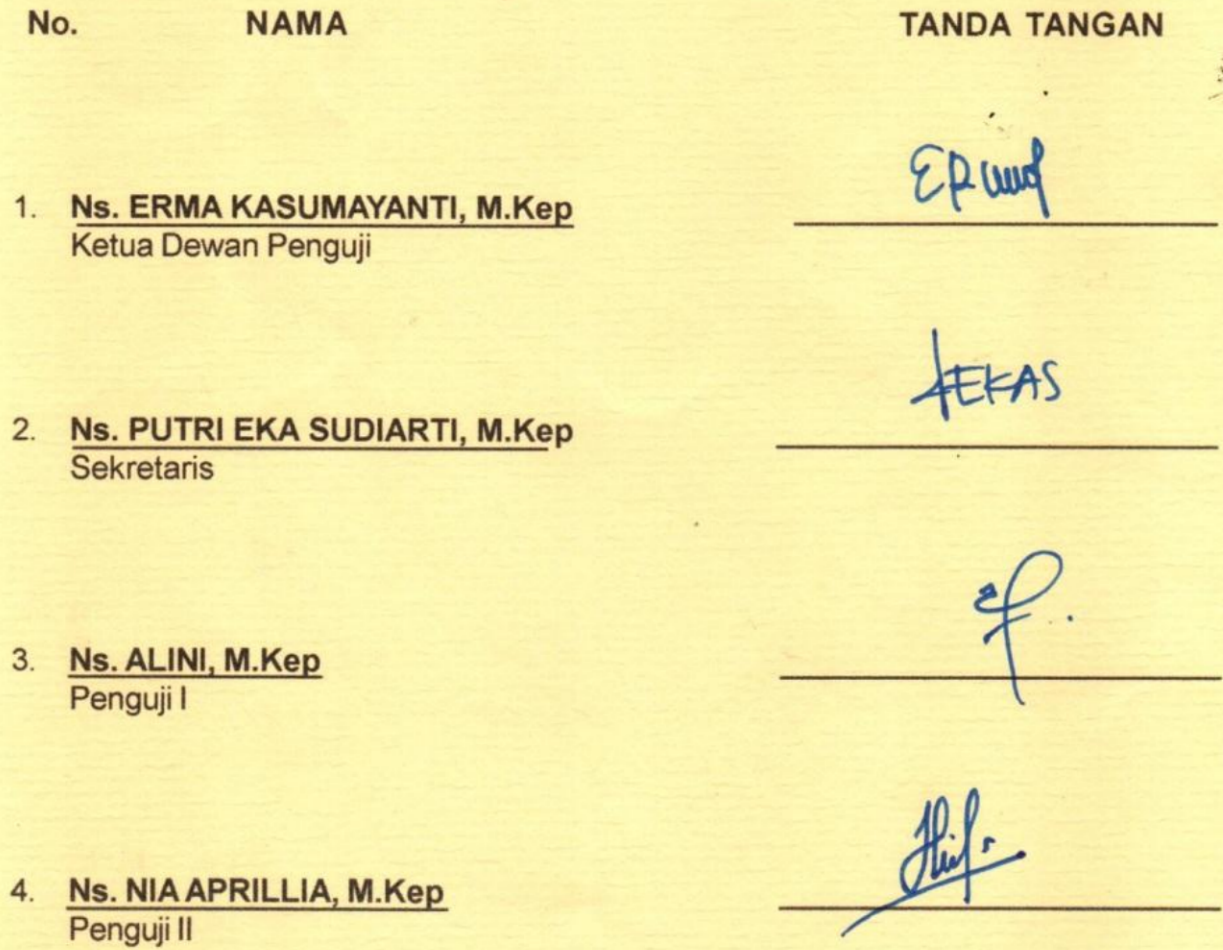 No. NAMA TANDA TANGAN
1. Ns. ERMA KASUMAYANTI, M.Kep
Ketua Dewan Penguji
2. Ns. PUTRI EKA SUDIARTI, M.Kep
Sekretaris
3. Ns. ALINI, M.Kep
Penguji I
4. Ns. NIA APRILLIA, M.Kep
Penguji II